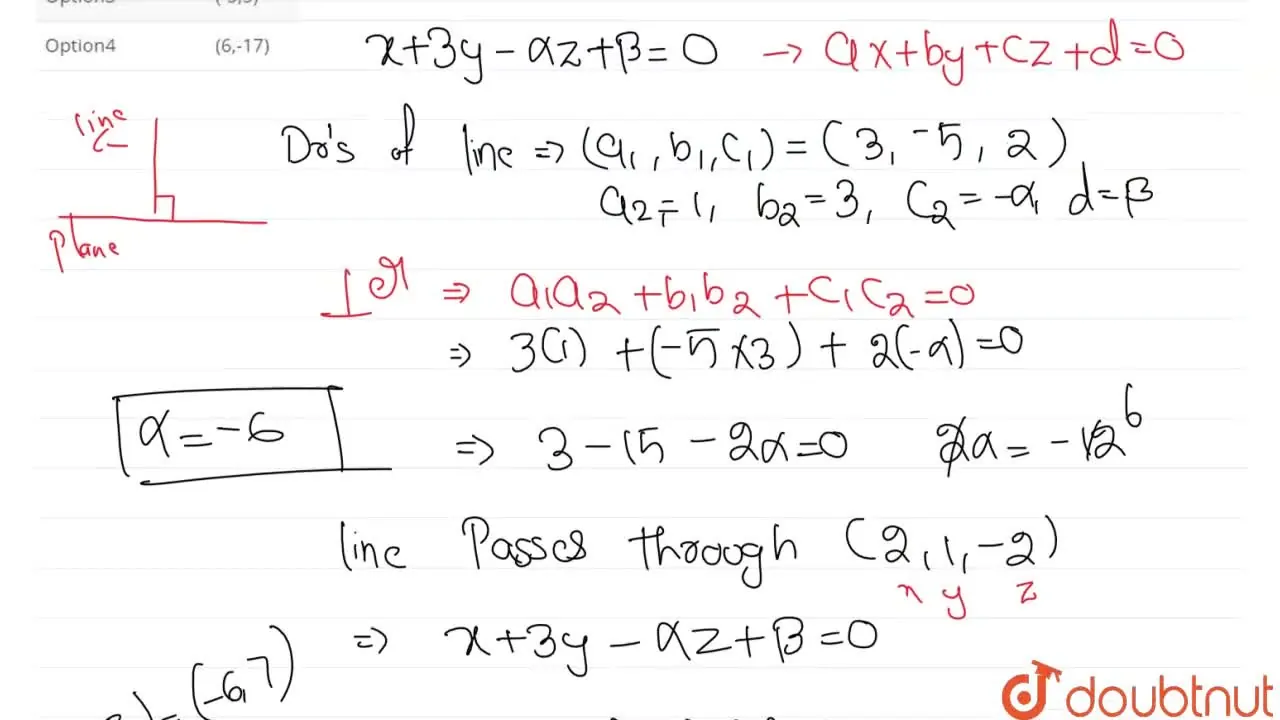 Option4 (6,-17)
x+3y-αz+β=0 → ax+by+cz+d=0
line
Dr's of line ⇒ (a₁, b₁, c₁) = (3, -5, 2)
a₂=1, b₂=3, c₂=-α, d=β
plane
⊥ ⇒ a₁a₂+b₁b₂+c₁c₂=0
⇒ 3(1) + (-5×3) + 2(-α)=0
α=-6 ⇒ 3-15-2α=0 2α=-12 6
line Passes through (2, 1, -2)
x y z
⇒ x+3y-αz+β=0
=(-6,7)
doubtnut